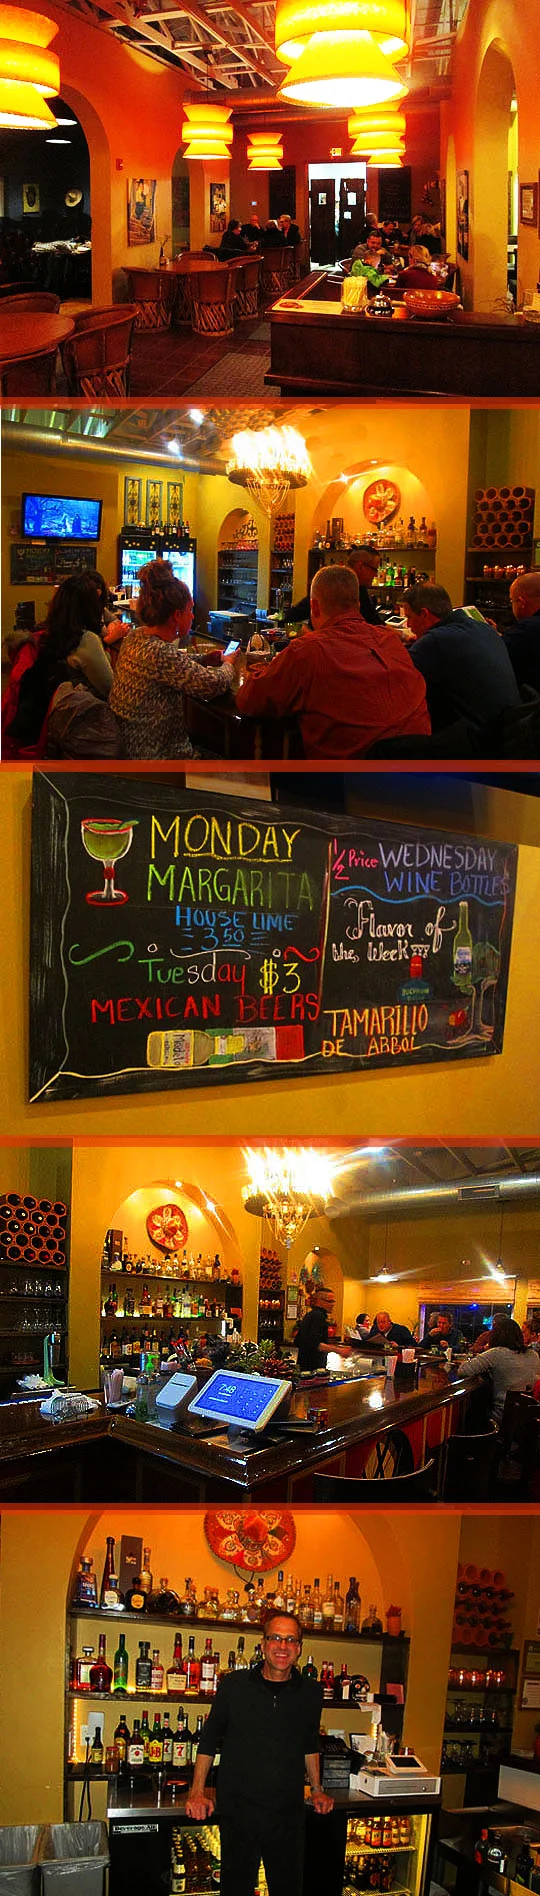 EXIT
MONDAY
MARGARITA
HOUSE LIME
3.50
Tuesday $3
MEXICAN BEERS
Modelo
1/2 Price WEDNESDAY
WINE BOTTLES
Flavor of
the Week
TAMARILLO
DE ARBOL
7:48
7 7
Beverage-Air